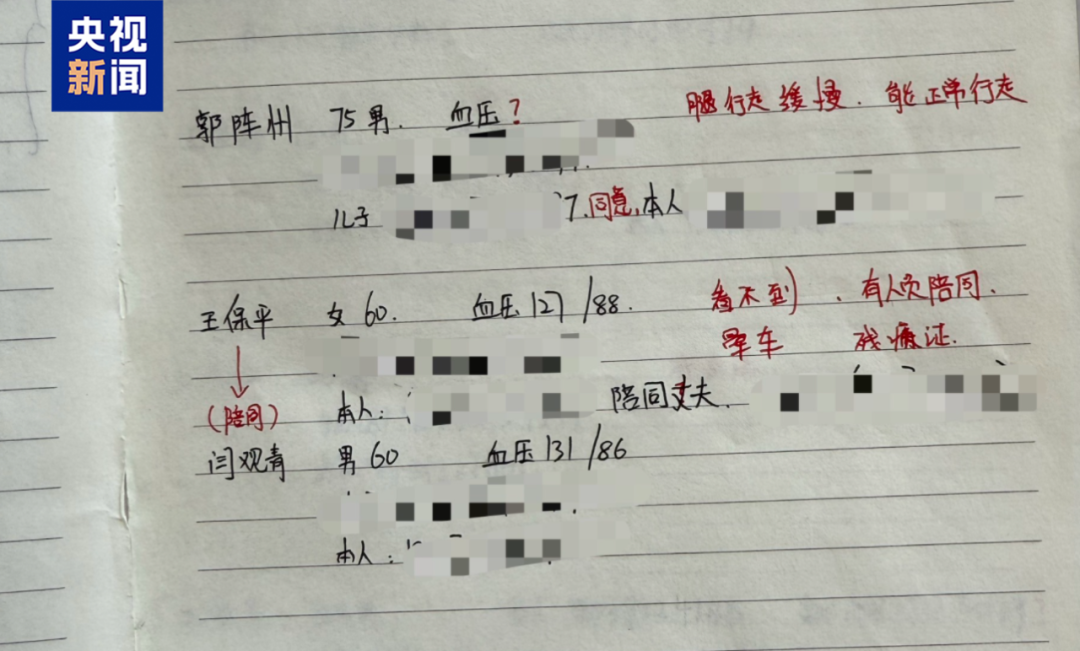 央视
新闻
郭阵州 75男. 血压? 腿行走缓慢. 能正常行走
儿子 7. 同意, 本人
王保平 女60. 血压127/88. 看不到, 有人员陪同.
晕车 残疾证.
(陪同) 本人: 陪同丈夫.
闫观青 男60 血压131/86
本人: